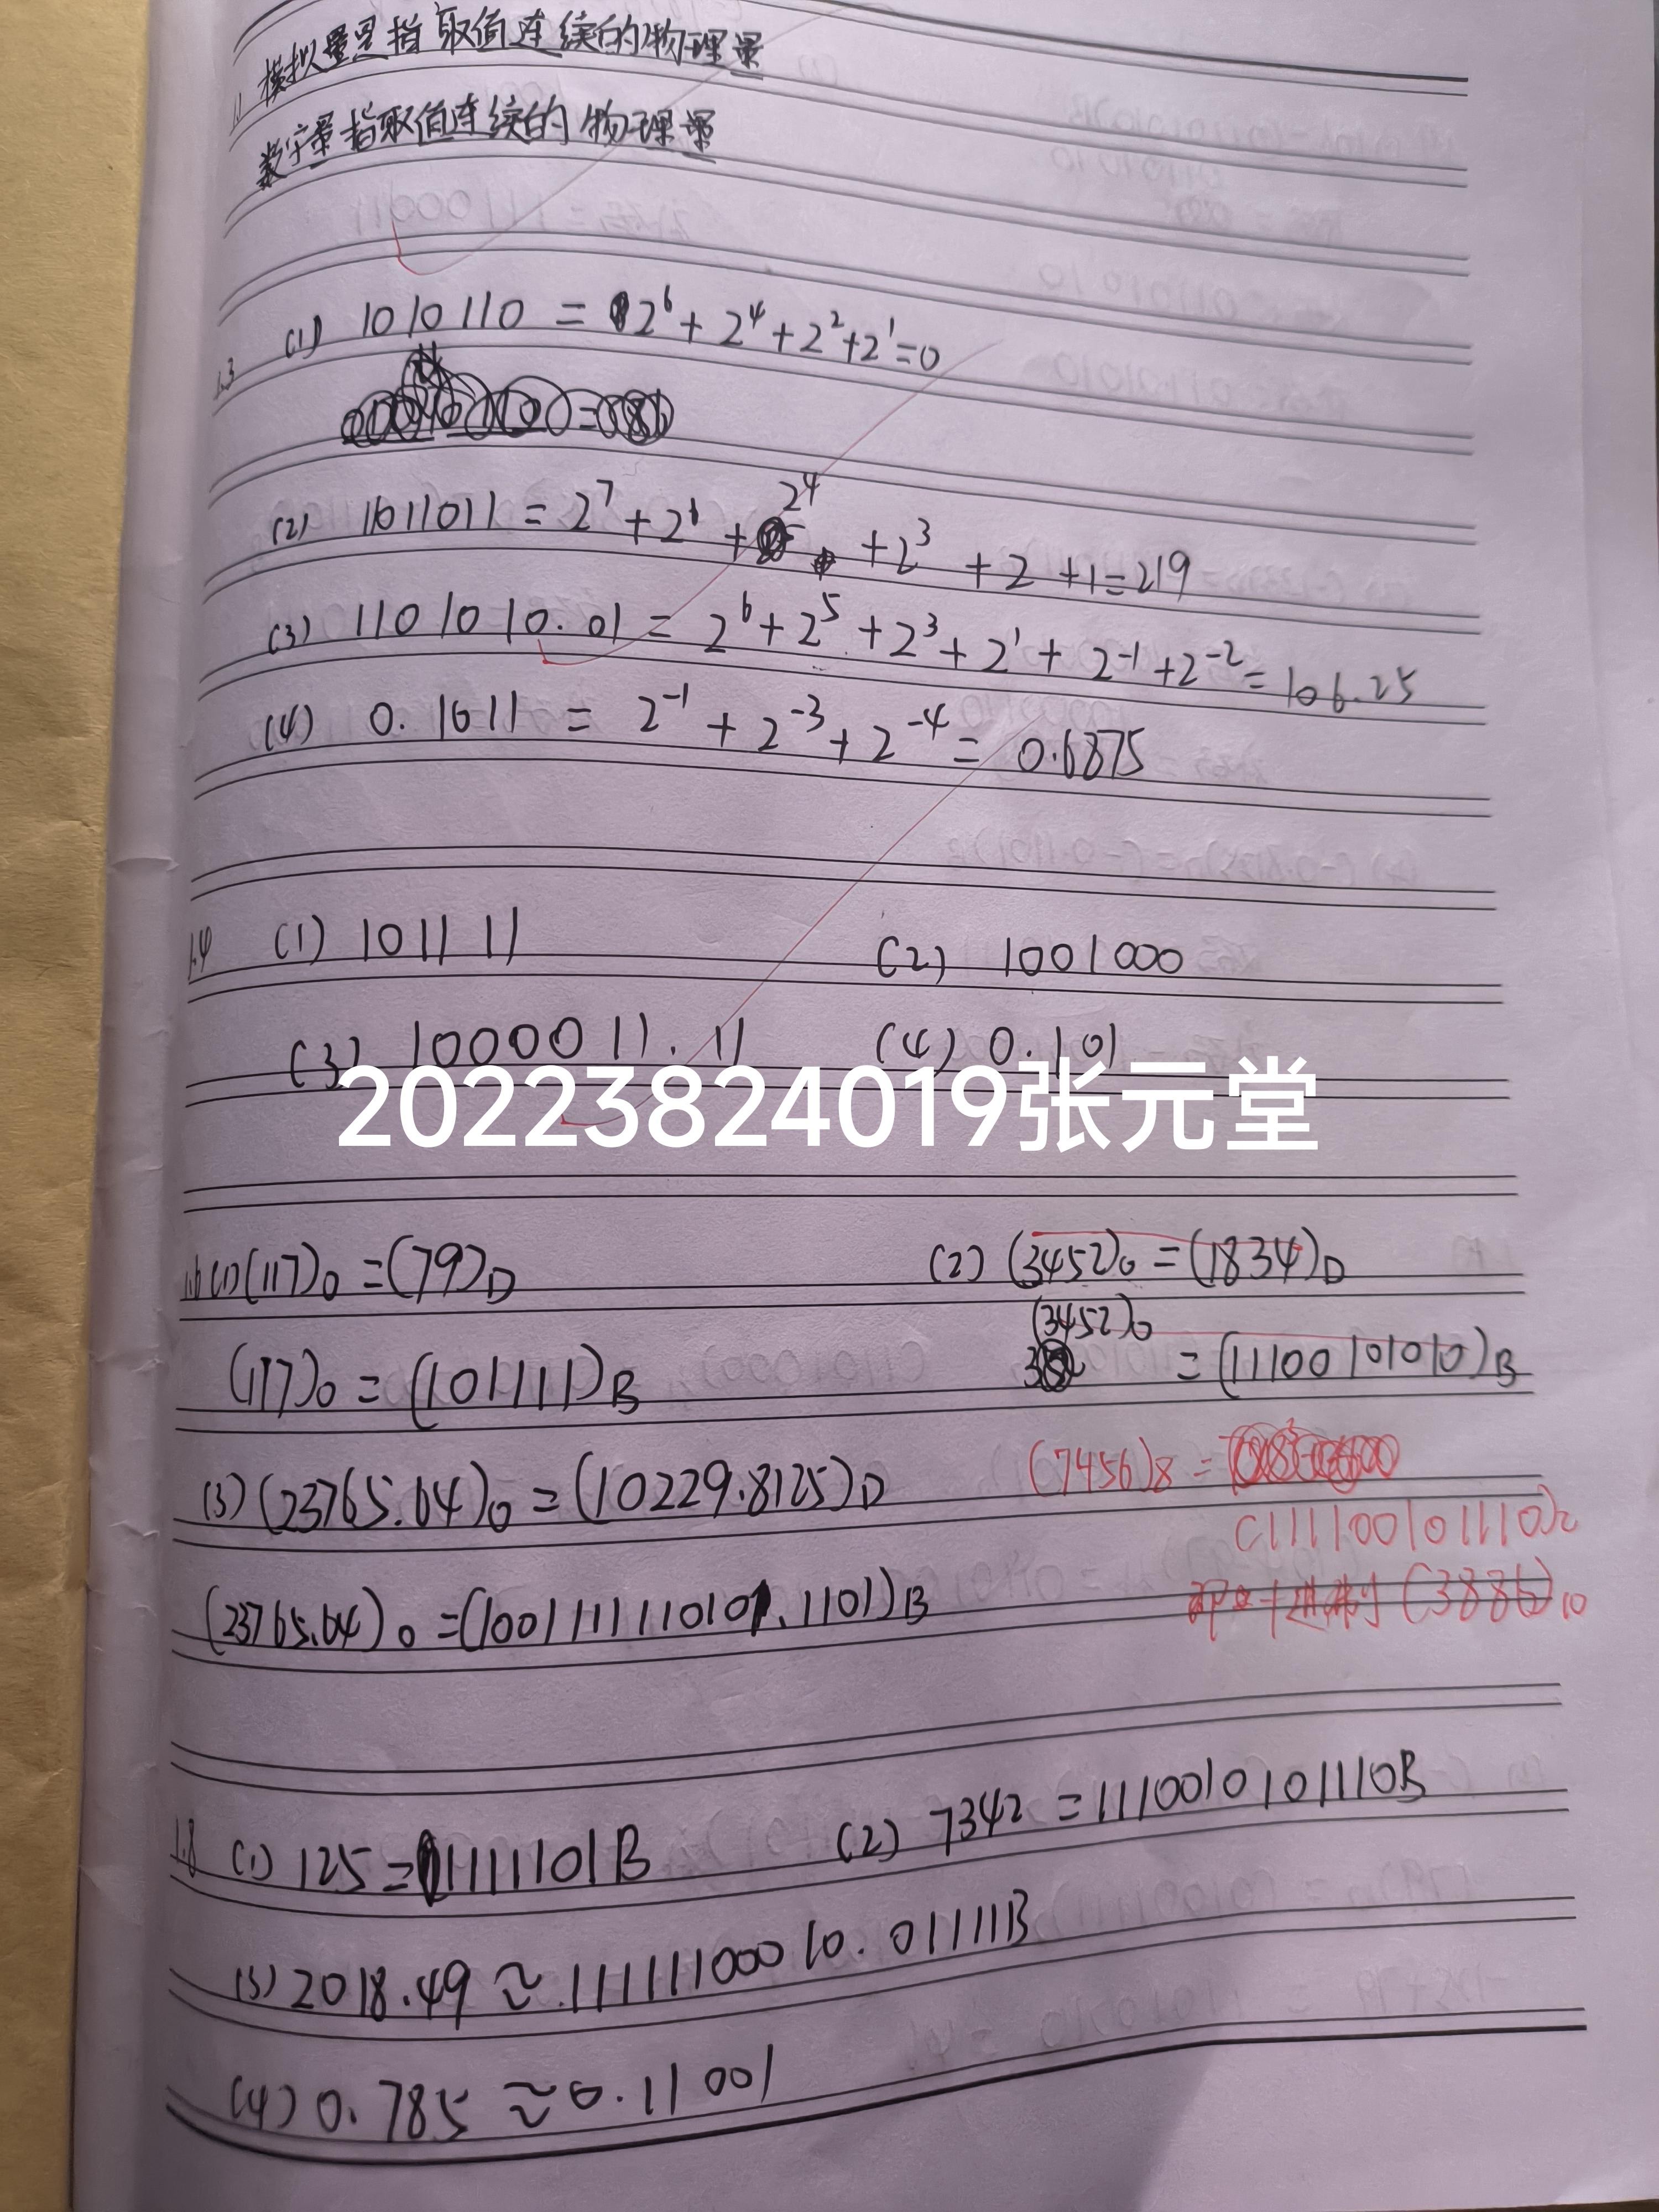 1.1 模拟量是指取值连续的物理量
数字量指取值连续的物理量
1.3 (1) 1010110 = 2⁶ + 2⁴ + 2² + 2¹ = 0
(2) 1011011 = 2⁷ + 2⁶ + 2⁴ + 2³ + 2 + 1 = 219
(3) 1101010.01 = 2⁶ + 2⁵ + 2³ + 2¹ + 2⁻¹ + 2⁻² = 106.25
(4) 0.1011 = 2⁻¹ + 2⁻³ + 2⁻⁴ = 0.6875
1.4 (1) 101111 (2) 1001000
(3) 1000011.11 (4) 0.101
20223824019张元堂
1.6 (1) (117)O = (79)D (2) (3452)O = (1834)D
(117)O = (101111)B (3452)O = (11100101010)B
(3) (23765.64)O = (10229.8125)D (7456)8 =
(111100101110)2
(23765.64)O = (10011111110101.1101)B 即 十进制 (3886)10
1.8 (1) 125 = 1111101B (2) 7342 = 1110010101110B
(3) 2018.49 ≈ 11111100010.01111B
(4) 0.785 ≈ 0.11001